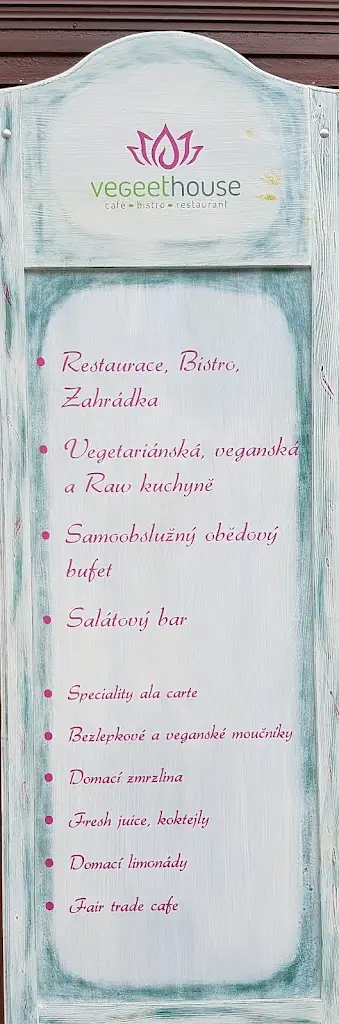 vegeethouse
café bistro restaurant
Restaurace, Bistro,
Zahrádka
Vegetariánská, veganská
a Raw kuchyně
Samoobslužný obědový
bufet
Salátový bar
Speciality ala carte
Bezlepkové a veganské moučníky
Domací zmrzlina
Fresh juice, koktejly
Domací limonády
Fair trade cafe